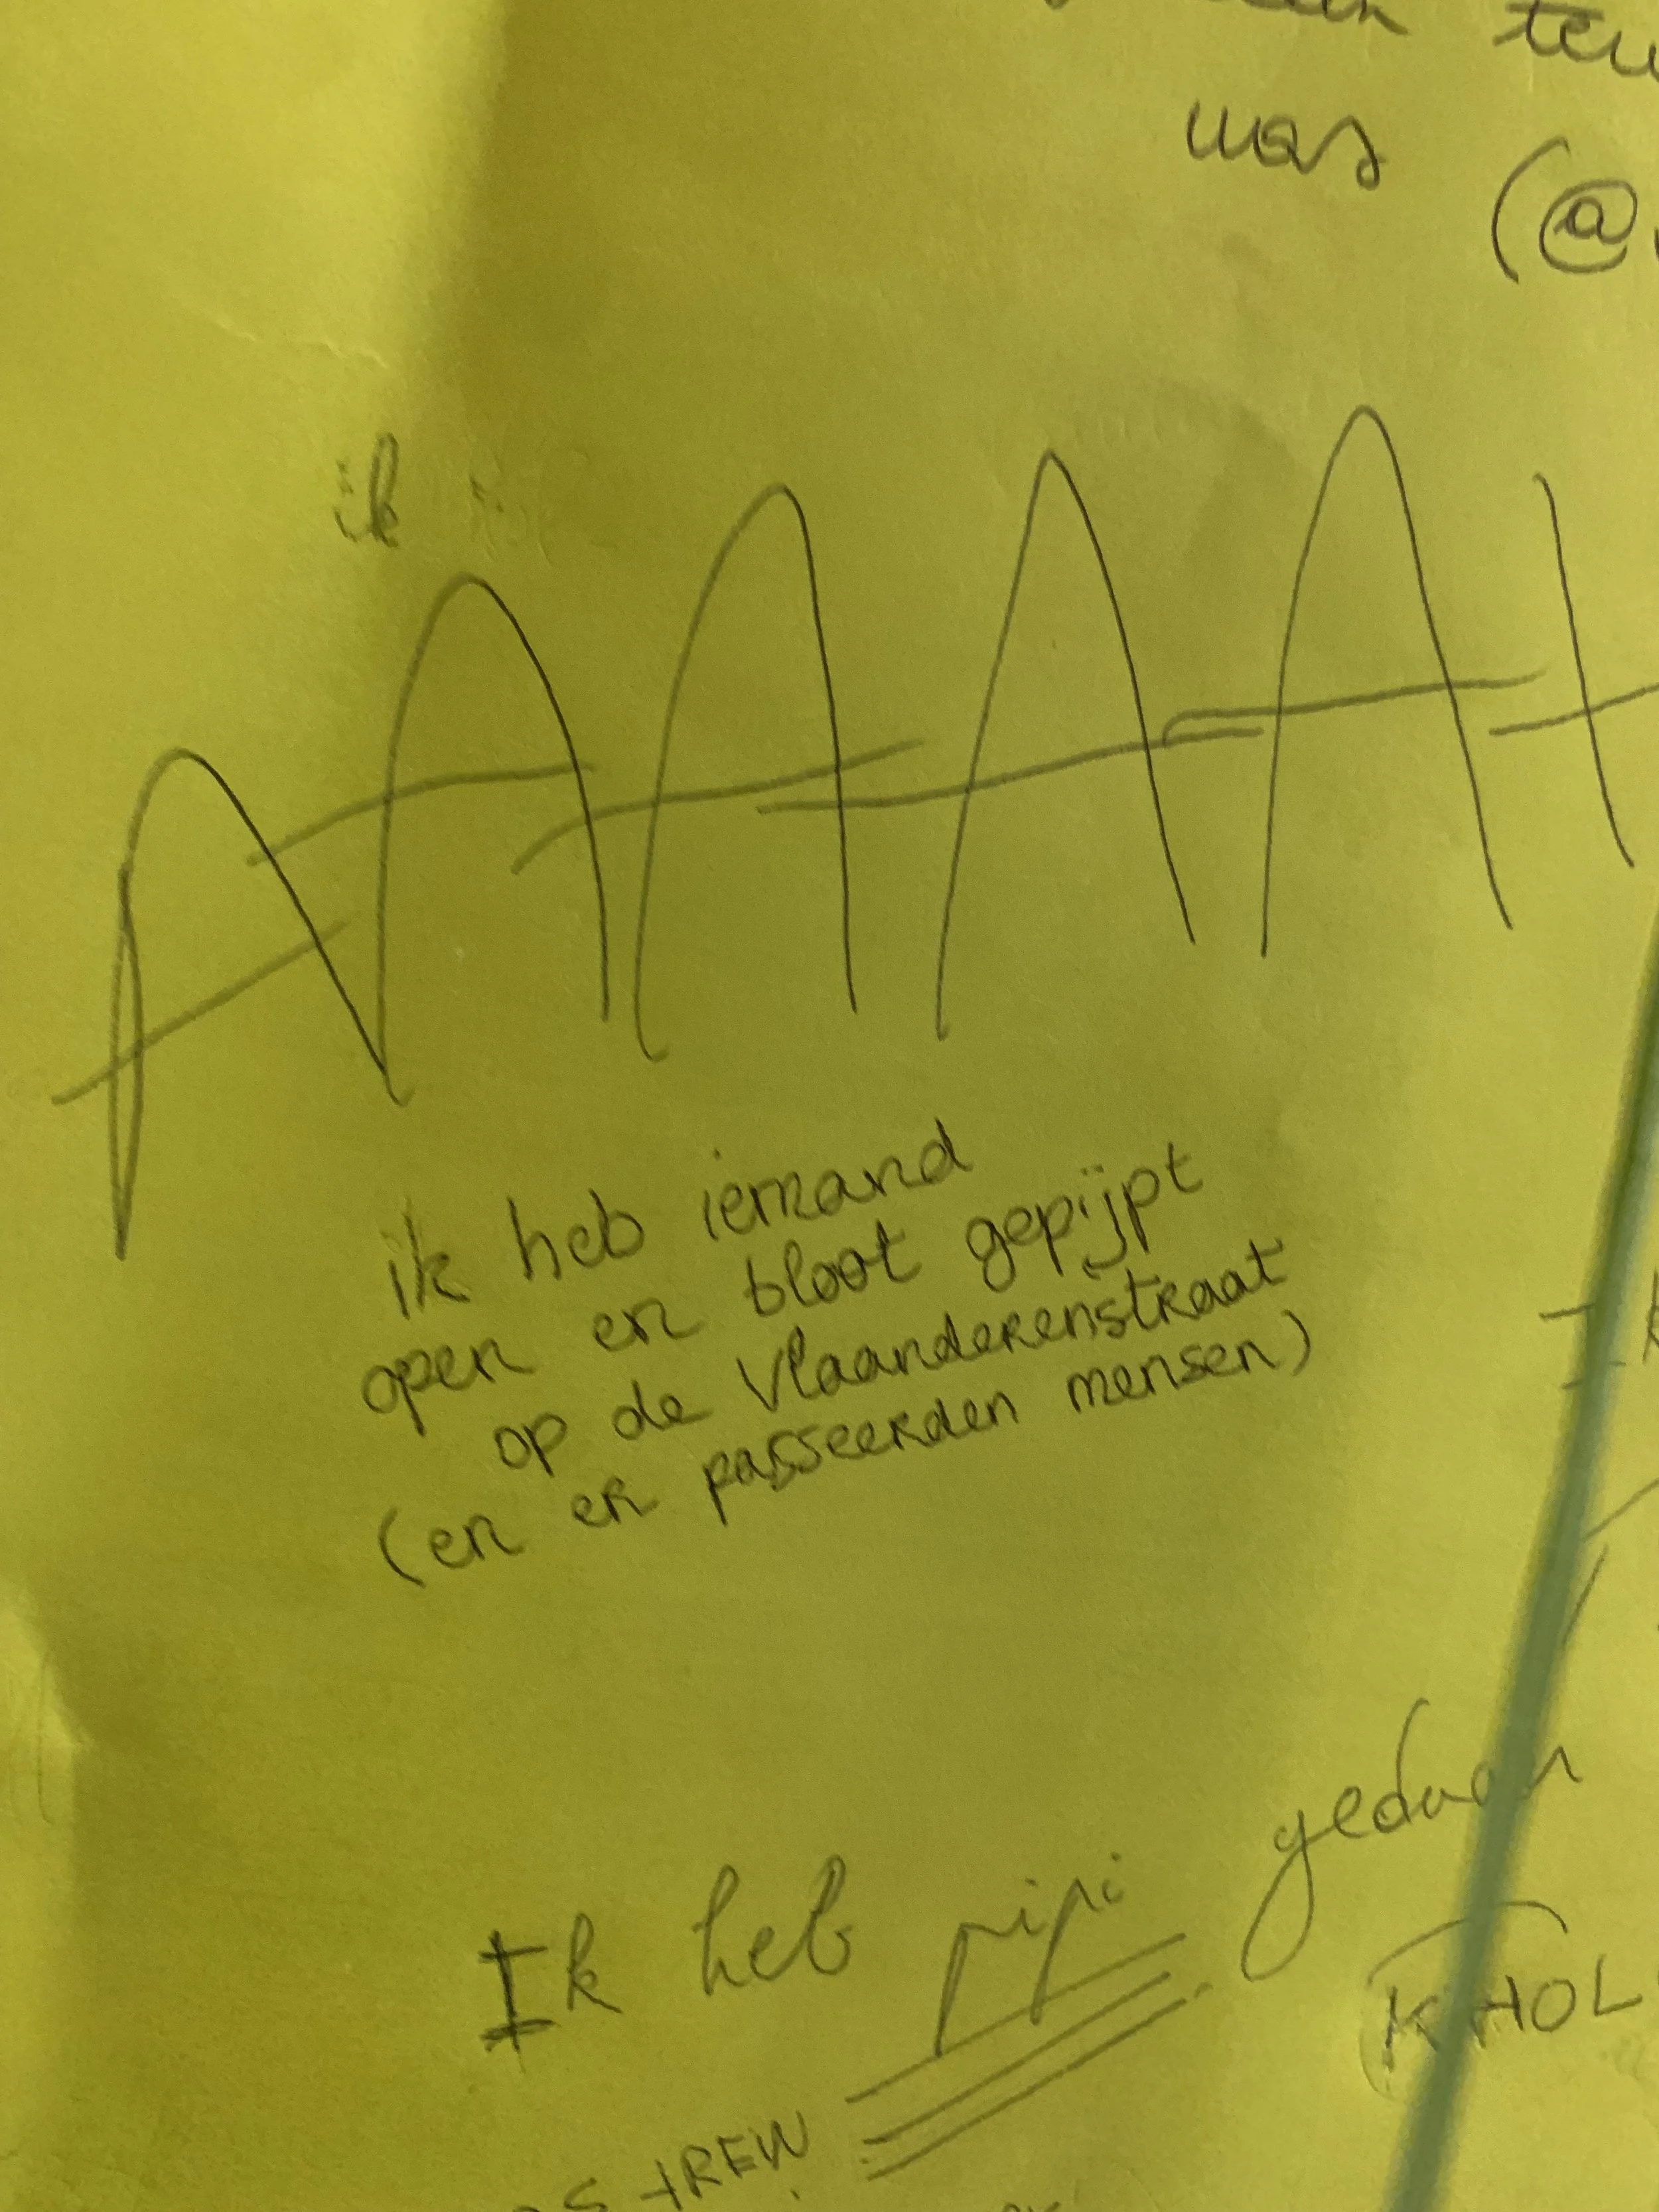 was (@
ik
AAAAA
ik heb iemand
open en bloot gepijpt
op de Vlaanderenstraat
(en er passeerden mensen)
Ik heb pipi gedaan